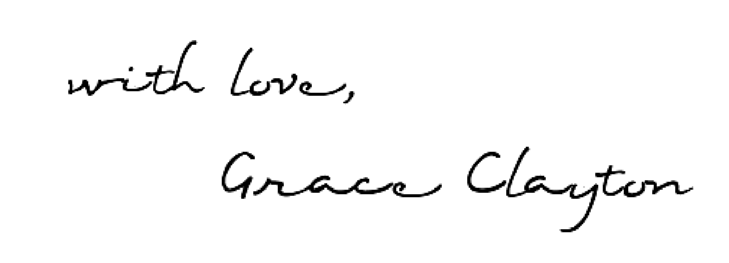 with love,
Grace Clayton